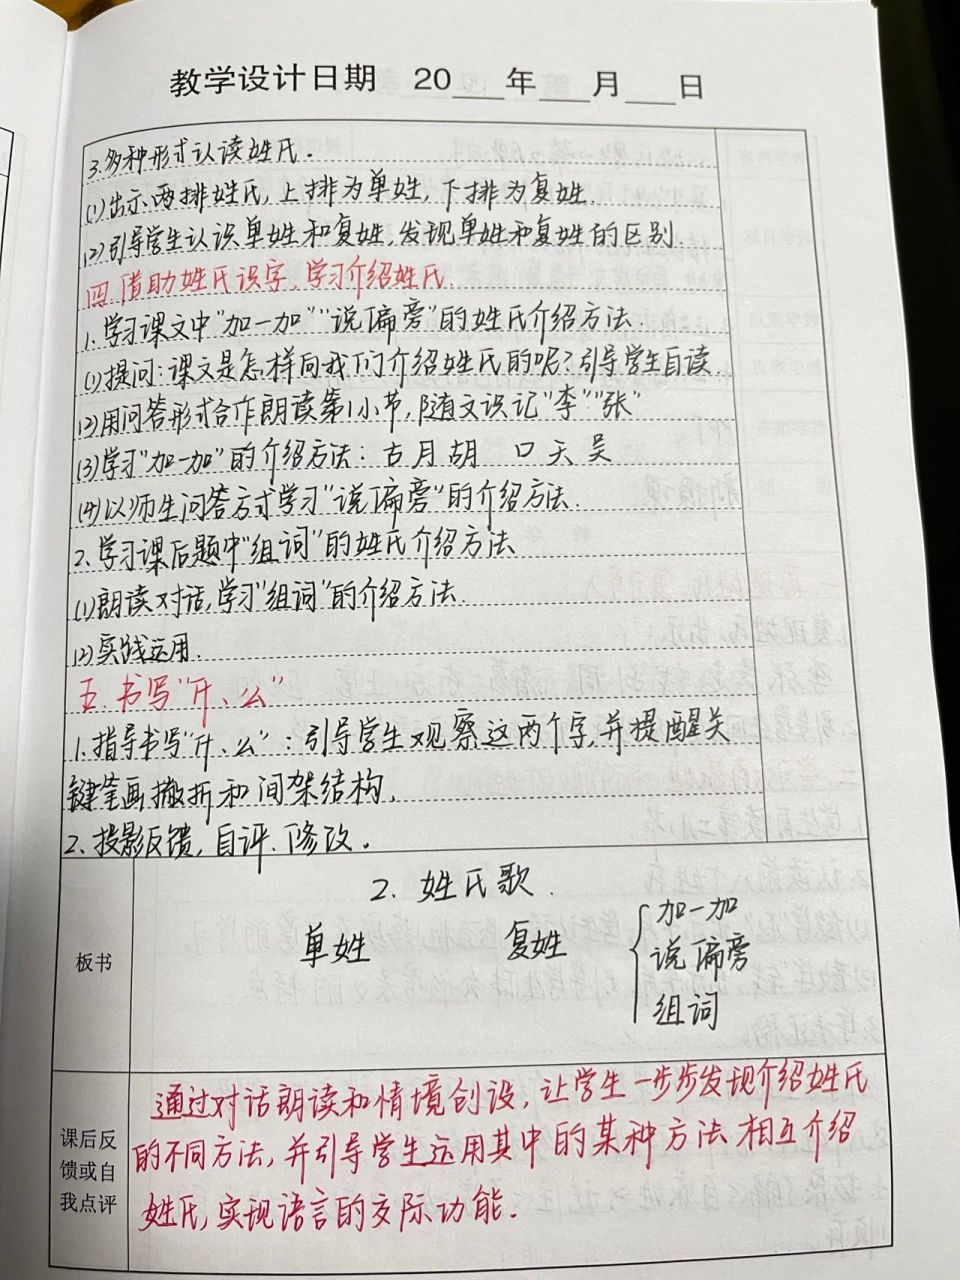 教学设计日期 20___年___月___日
3.多种形式认读姓氏.
(1)出示两排姓氏,上排为单姓,下排为复姓.
(2)引导学生认识单姓和复姓,发现单姓和复姓的区别.
四.借助姓氏识字,学习介绍姓氏.
1.学习课文中"加一加""说偏旁"的姓氏介绍方法.
(1)提问:课文是怎样向我们介绍姓氏的呢?引导学生自读.
(2)用问答形式合作朗读第1小节,随文识记"李""张"
(3)学习"加一加"的介绍方法: 古月胡 口天吴
(4)以师生问答方式学习"说偏旁"的介绍方法.
2.学习课后题中"组词"的姓氏介绍方法
(1)朗读对话,学习"组词"的介绍方法.
(2)实践运用.
五.书写"什、么"
1.指导书写"什、么":引导学生观察这两个字,并提醒关
键笔画撇折和间架结构.
2.投影反馈,自评.修改.
板书
2.姓氏歌.
单姓 复姓 加一加
说偏旁
组词
课后反
馈或自
我点评
通过对话朗读和情境创设,让学生一步步发现介绍姓氏
的不同方法,并引导学生运用其中的某种方法相互介绍
姓氏,实现语言的交际功能.